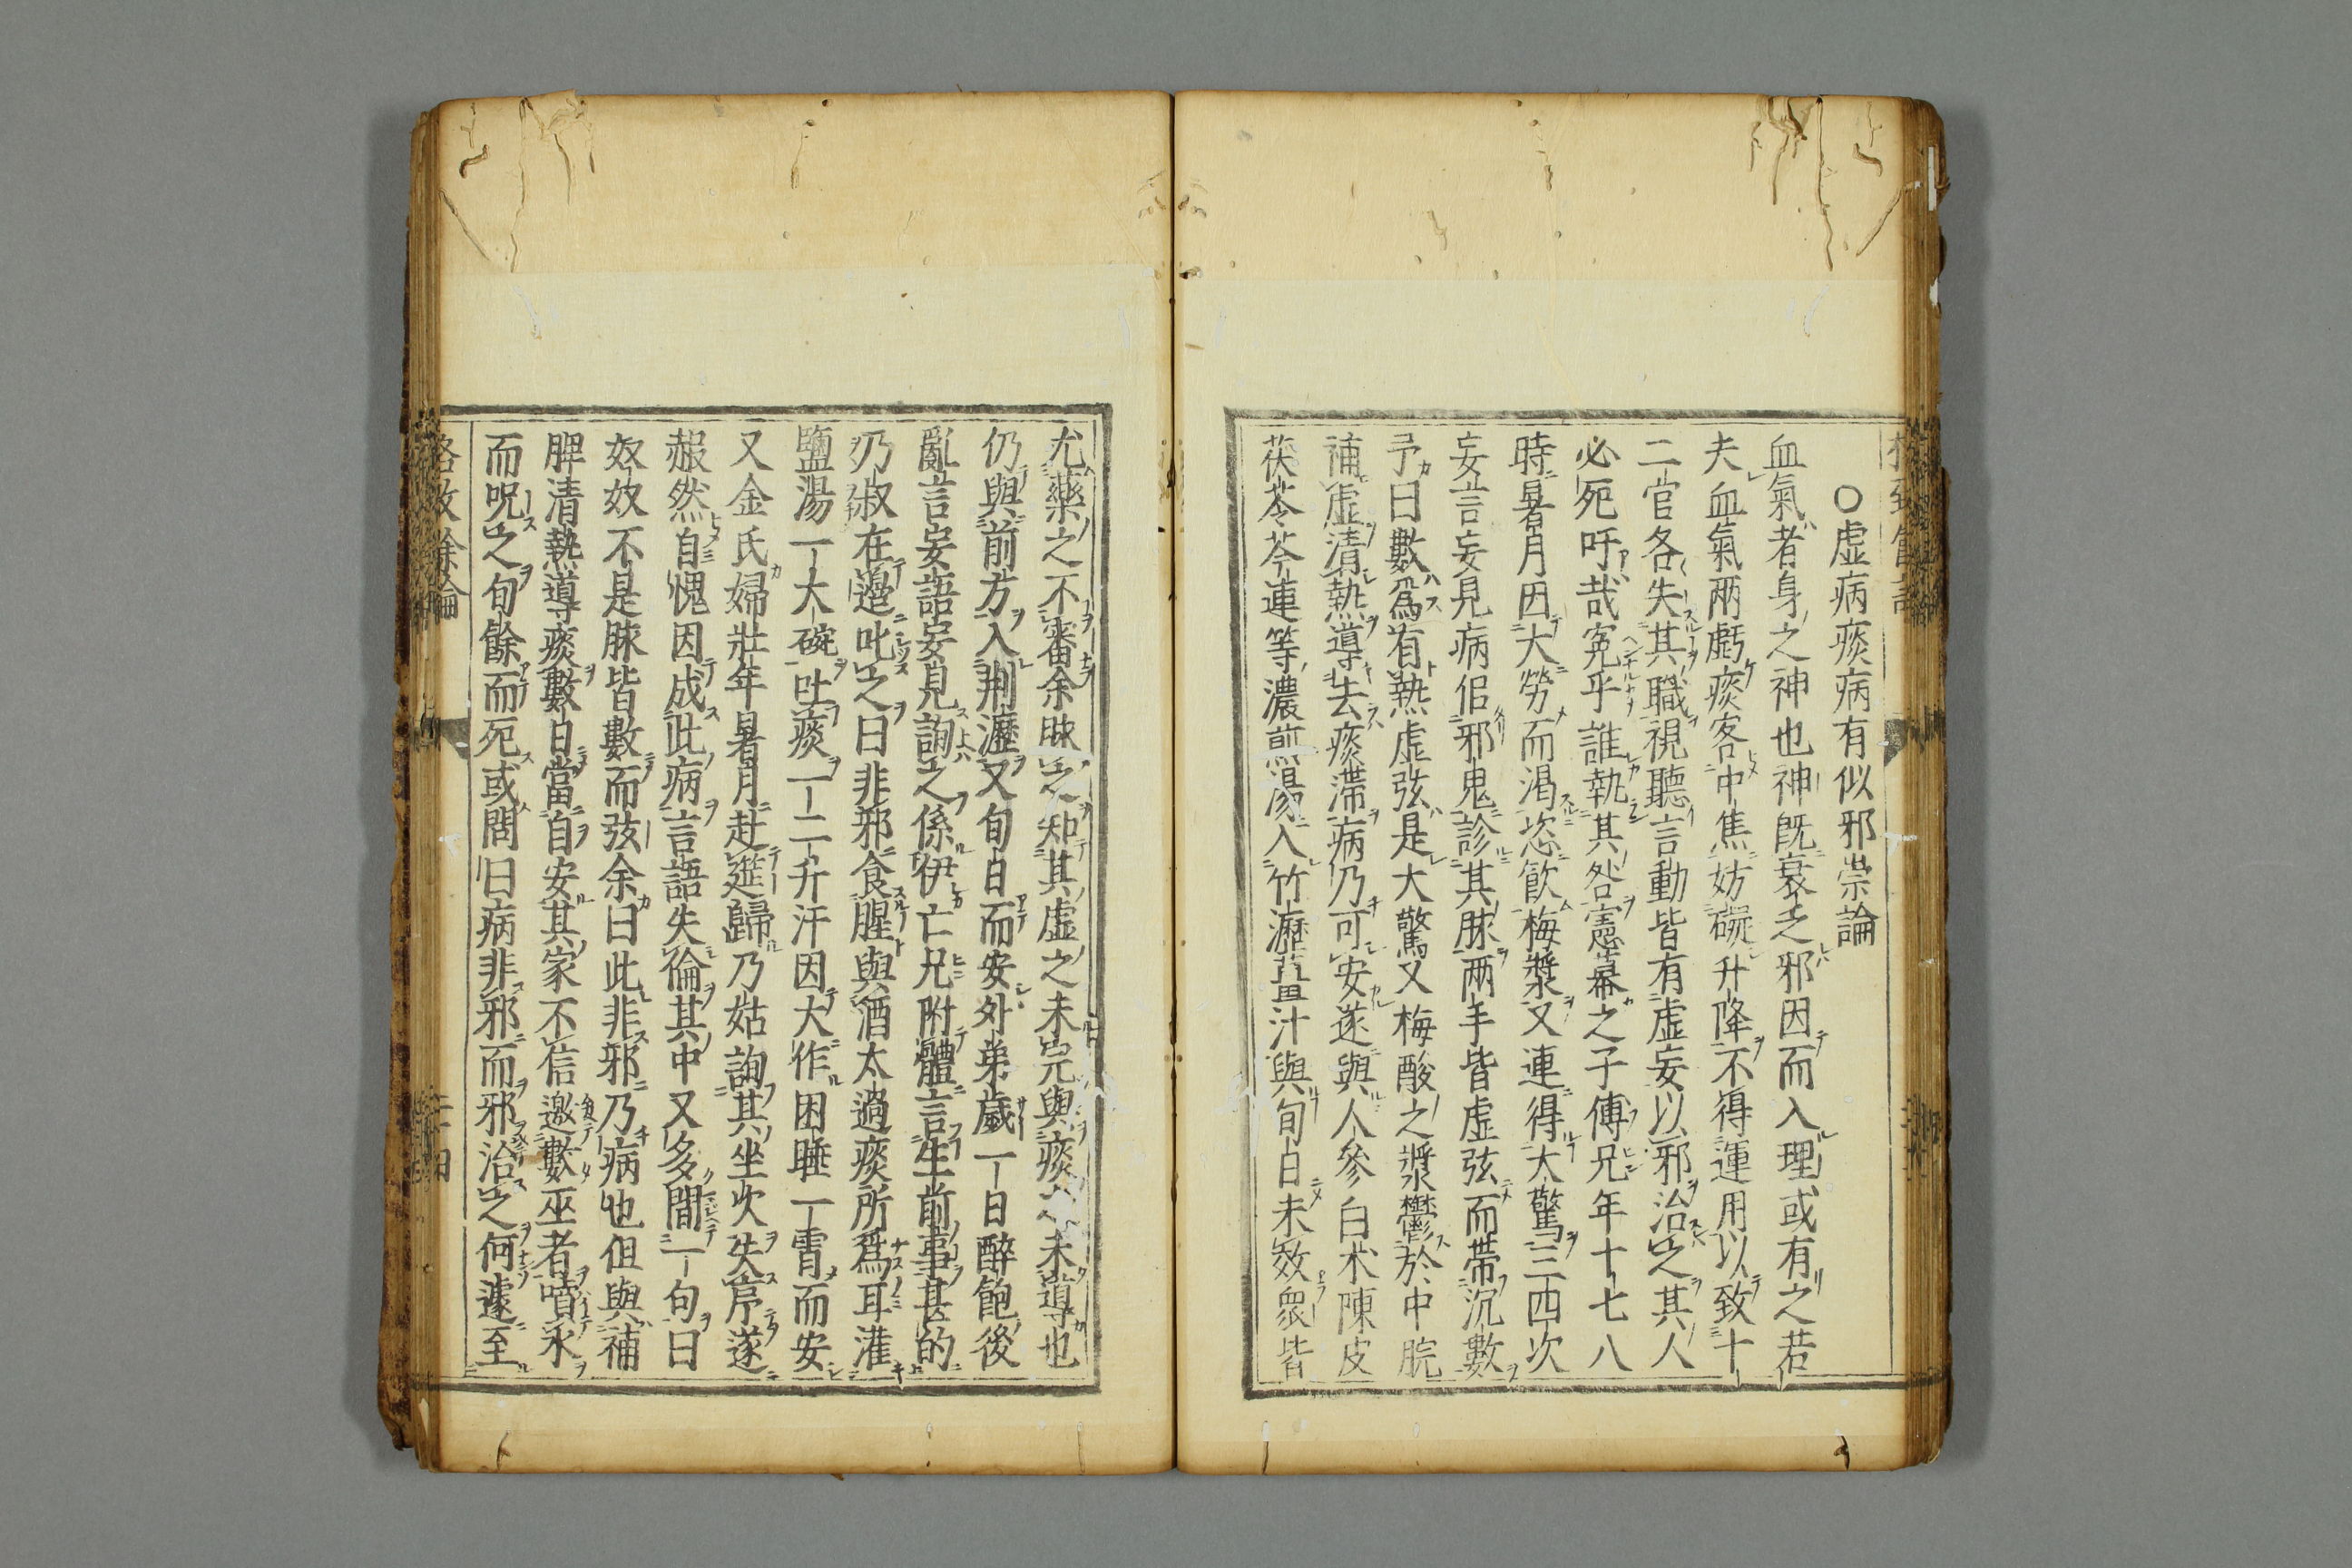 ○虚病痰病有似邪祟論
血氣者身之神也神既衰乏邪因而入理或有之若
夫血氣兩虧痰客中焦妨礙升降不得運用以致十
二官各失其職視聽言動皆有虚妄以邪治之其人
必死吁哉冤乎誰執其咎憲幕之子傅兄年十七八
時暑月因大勞而渴恣飲梅漿又連得大驚三四次
妄言妄見病佀邪鬼診其脉兩手皆虚弦而帶沉數
予曰數爲有熱虚弦是大驚又梅酸之漿鬱於中脘
補虚清熱導去痰滞病乃可安遂與人參白朮陳皮
茯苓芩連等濃煎湯入竹瀝薑汁與旬日未效衆皆
尤藥之不審余脉之知其虚之未完與痰之未導也
仍與前方入荆瀝又旬日而安外弟歲一日醉飽後
亂言妄語妄見詢之係伊亡兄附體言生前事甚的
乃叔在邉叱之曰非邪食腥與酒太過痰所爲耳灌
鹽湯一大碗吐痰一二升汗因大作困睡一宵而安
又金氏婦壯年暑月赴筵歸乃姑詢其坐次失序遂
赧然自愧因成此病言語失倫其中又多間一句曰
奴奴不是脉皆數而弦余曰此非邪乃病也但與補
脾清熱導痰數日當自安其家不信邀數巫者噴水
而呪之旬餘而死或問曰病非邪而邪治之何遽至
格致餘論